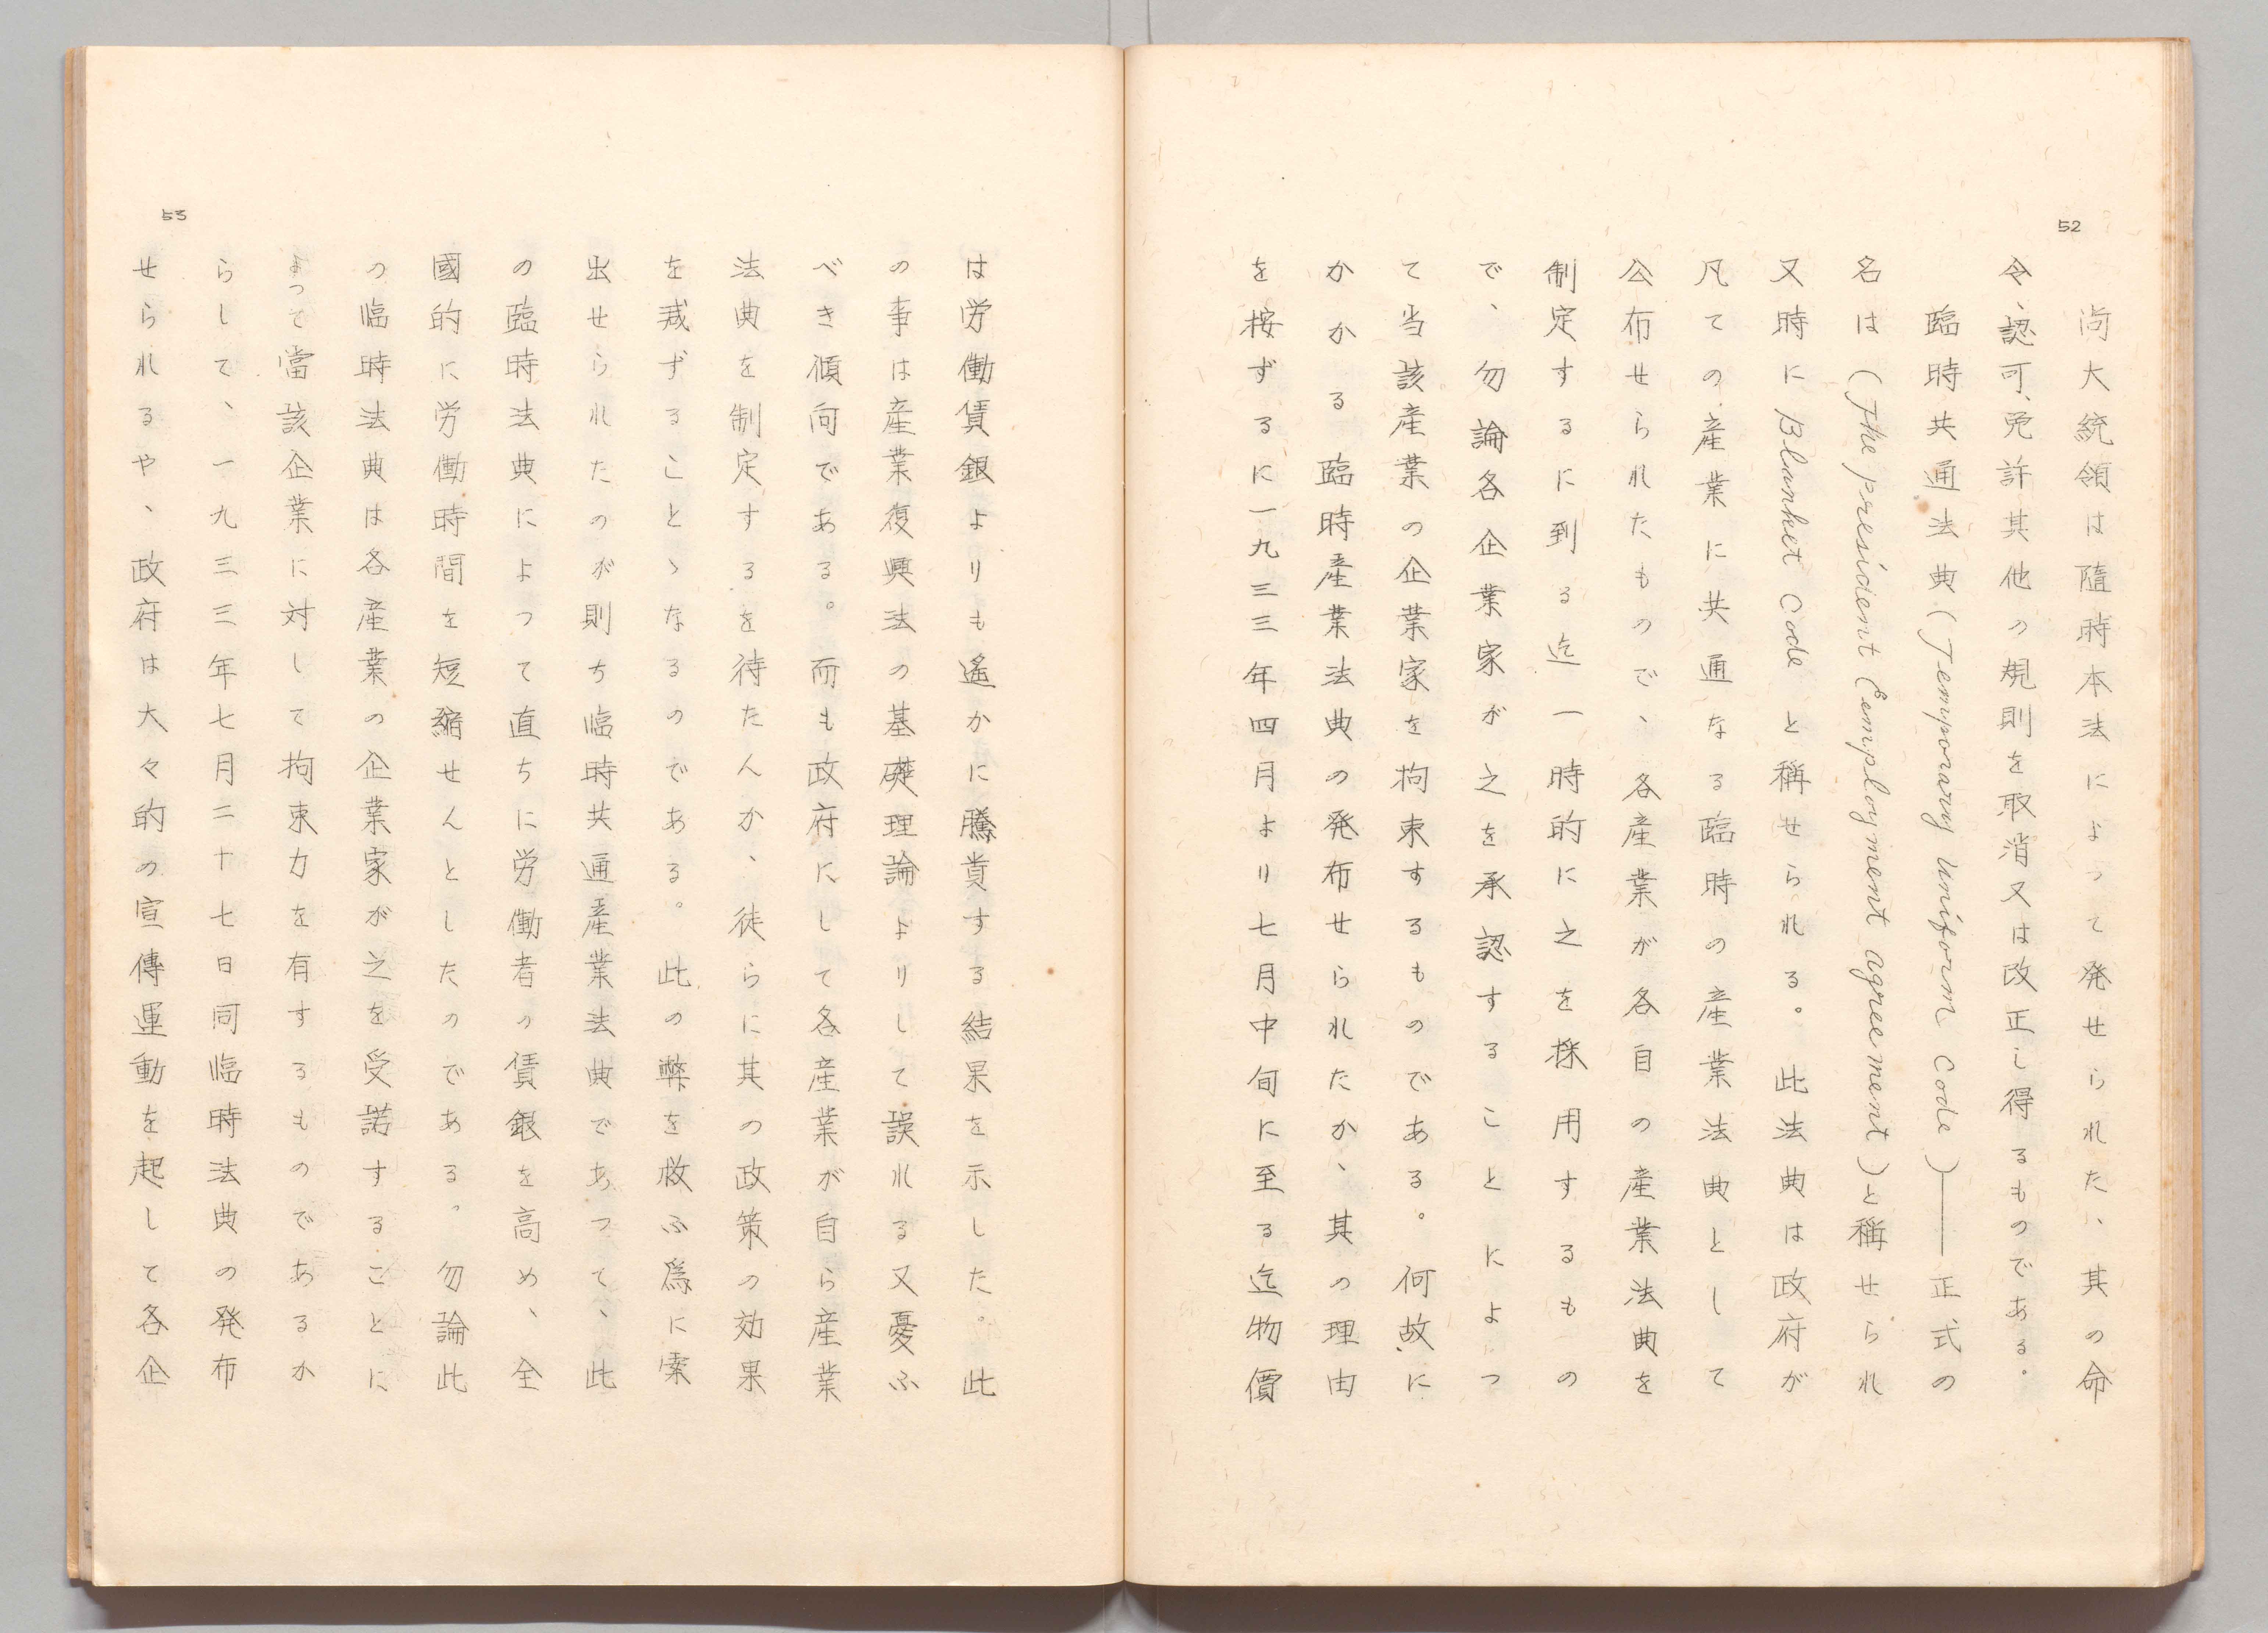 52
尚大統領は隨時本法によつて発せられた、其の命
令、認可、免許其他の規則を取消又は改正し得るものである。
臨時共通法典(Temporary Uniform Code)——正式の
名は(The president Employment agreement)と稱せられ
又時にBlanket Codeと稱せられる。此法典は政府が
凡ての産業に共通なる臨時の産業法典として
公布せられたもので、各産業が各自の産業法典を
制定するに到る迄一時的に之を採用するもの
で、勿論各企業家が之を承認することによつ
て当該産業の企業家を拘束するものである。何故に
かかる臨時産業法典の発布せられたか、其の理由
を按ずるに一九三三年四月より七月中旬に至る迄物價
53
は労働賃銀よりも遙かに騰貴する結果を示した。此
の事は産業復興法の基礎理論よりして誤れる又憂ふ
べき傾向である。而も政府にして各産業が自ら産業
法典を制定するを待たんか、徒らに其の政策の効果
を減ずることゝなるのである。此の弊を救ふ爲に案
出せられたのが則ち臨時共通産業法典であつて、此
の臨時法典によつて直ちに労働者の賃銀を高め、全
國的に労働時間を短縮せんとしたのである。勿論此
の臨時法典は各産業の企業家が之を受諾することに
よつて當該企業に対して拘束力を有するものであるか
らして、一九三三年七月二十七日同臨時法典の発布
せられるや、政府は大々的の宣傳運動を起して各企